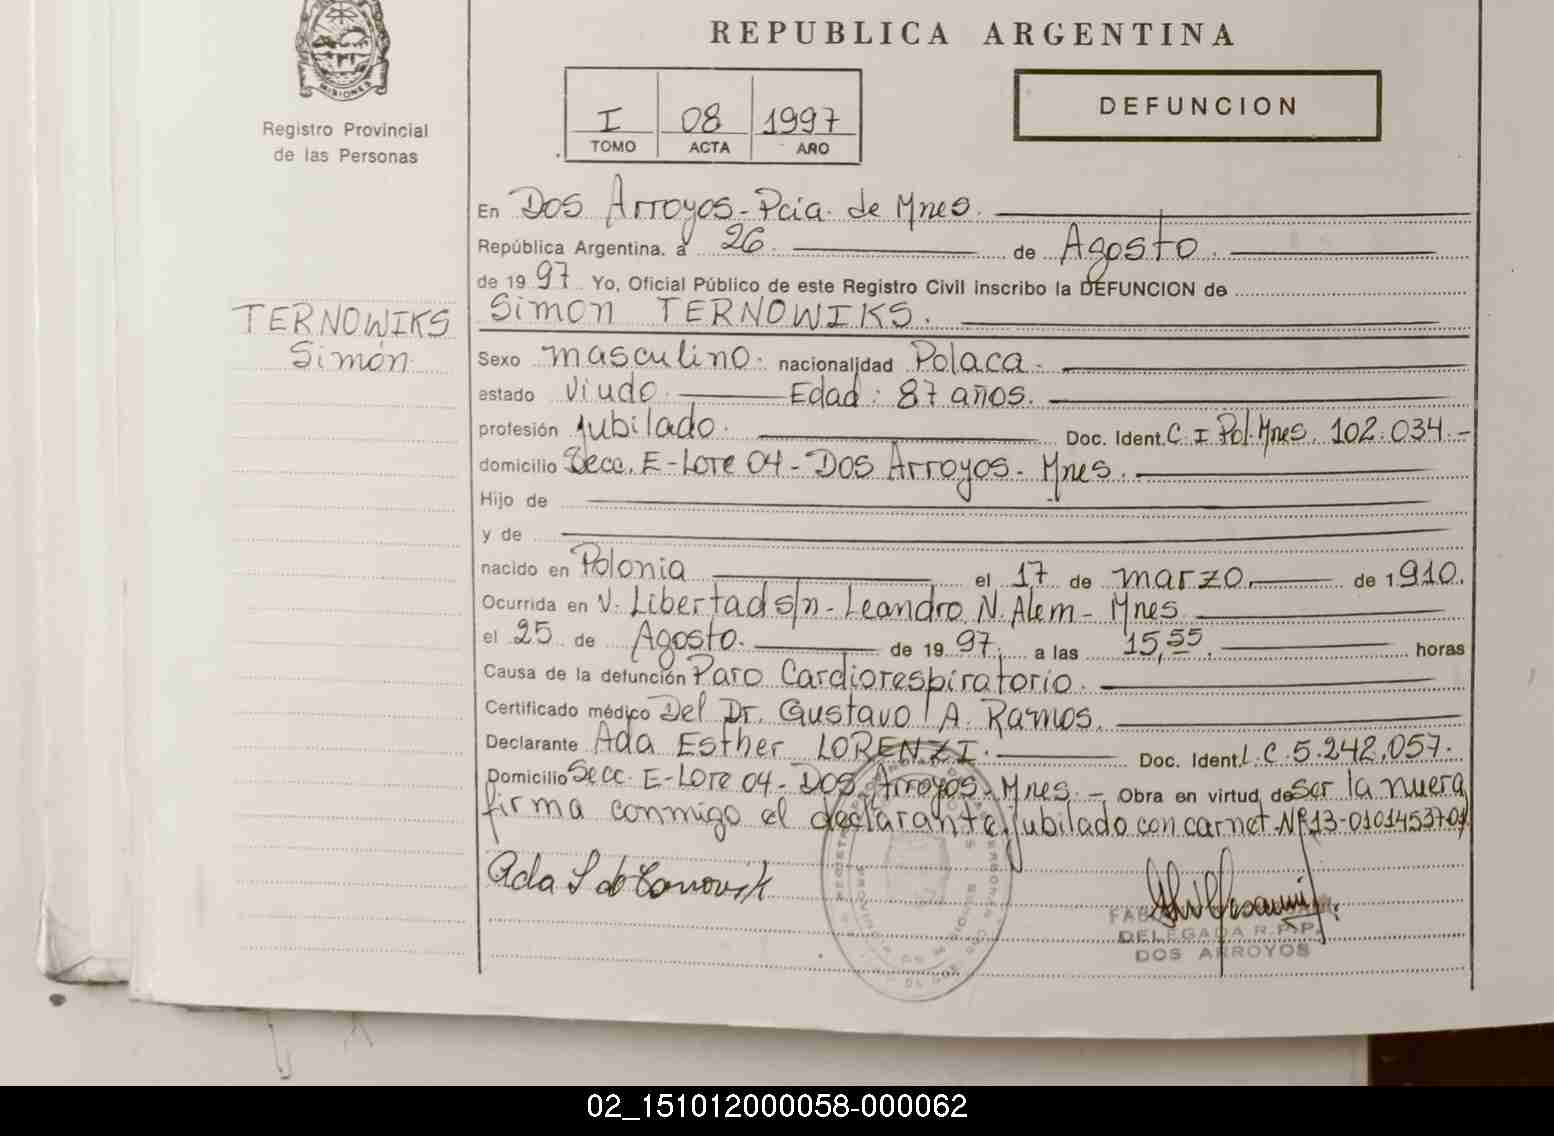 MISIONES
Registro Provincial
de las Personas
REPUBLICA ARGENTINA
I 08 1997
TOMO ACTA AÑO
DEFUNCION
En Dos Arroyos - Pcia. de Mnes.
República Argentina, a 26 de Agosto
de 19 97 Yo, Oficial Público de este Registro Civil inscribo la DEFUNCION de
Simon TERNOWIKS.
TERNOWIKS
Simón
Sexo masculino. nacionalidad Polaca.
estado viudo. Edad: 87 años.
profesión Jubilado. Doc. Ident. C. I Pol. Mnes. 102.034.-
domicilio Secc. E - Lote 04 - Dos Arroyos - Mnes.
Hijo de
y de
nacido en Polonia el 17 de marzo de 1.910.
Ocurrida en V. Libertad s/n - Leandro N. Alem - Mnes
el 25 de Agosto. de 19 97. a las 15,55. horas
Causa de la defunción Paro Cardiorespiratorio.
Certificado médico Del Dr. Gustavo A. Ramos.
Declarante Ada Esther LORENZI. Doc. Ident. L. C. 5.242.057.
Domicilio Secc. E - Lote 04 - Dos Arroyos - Mnes. - Obra en virtud de Ser la nuera
firma conmigo el declarante. Jubilado con carnet Nº 13-0101453701
Ada L de
DELEGADA R.P.P.
DOS ARROYOS
02_151012000058-000062